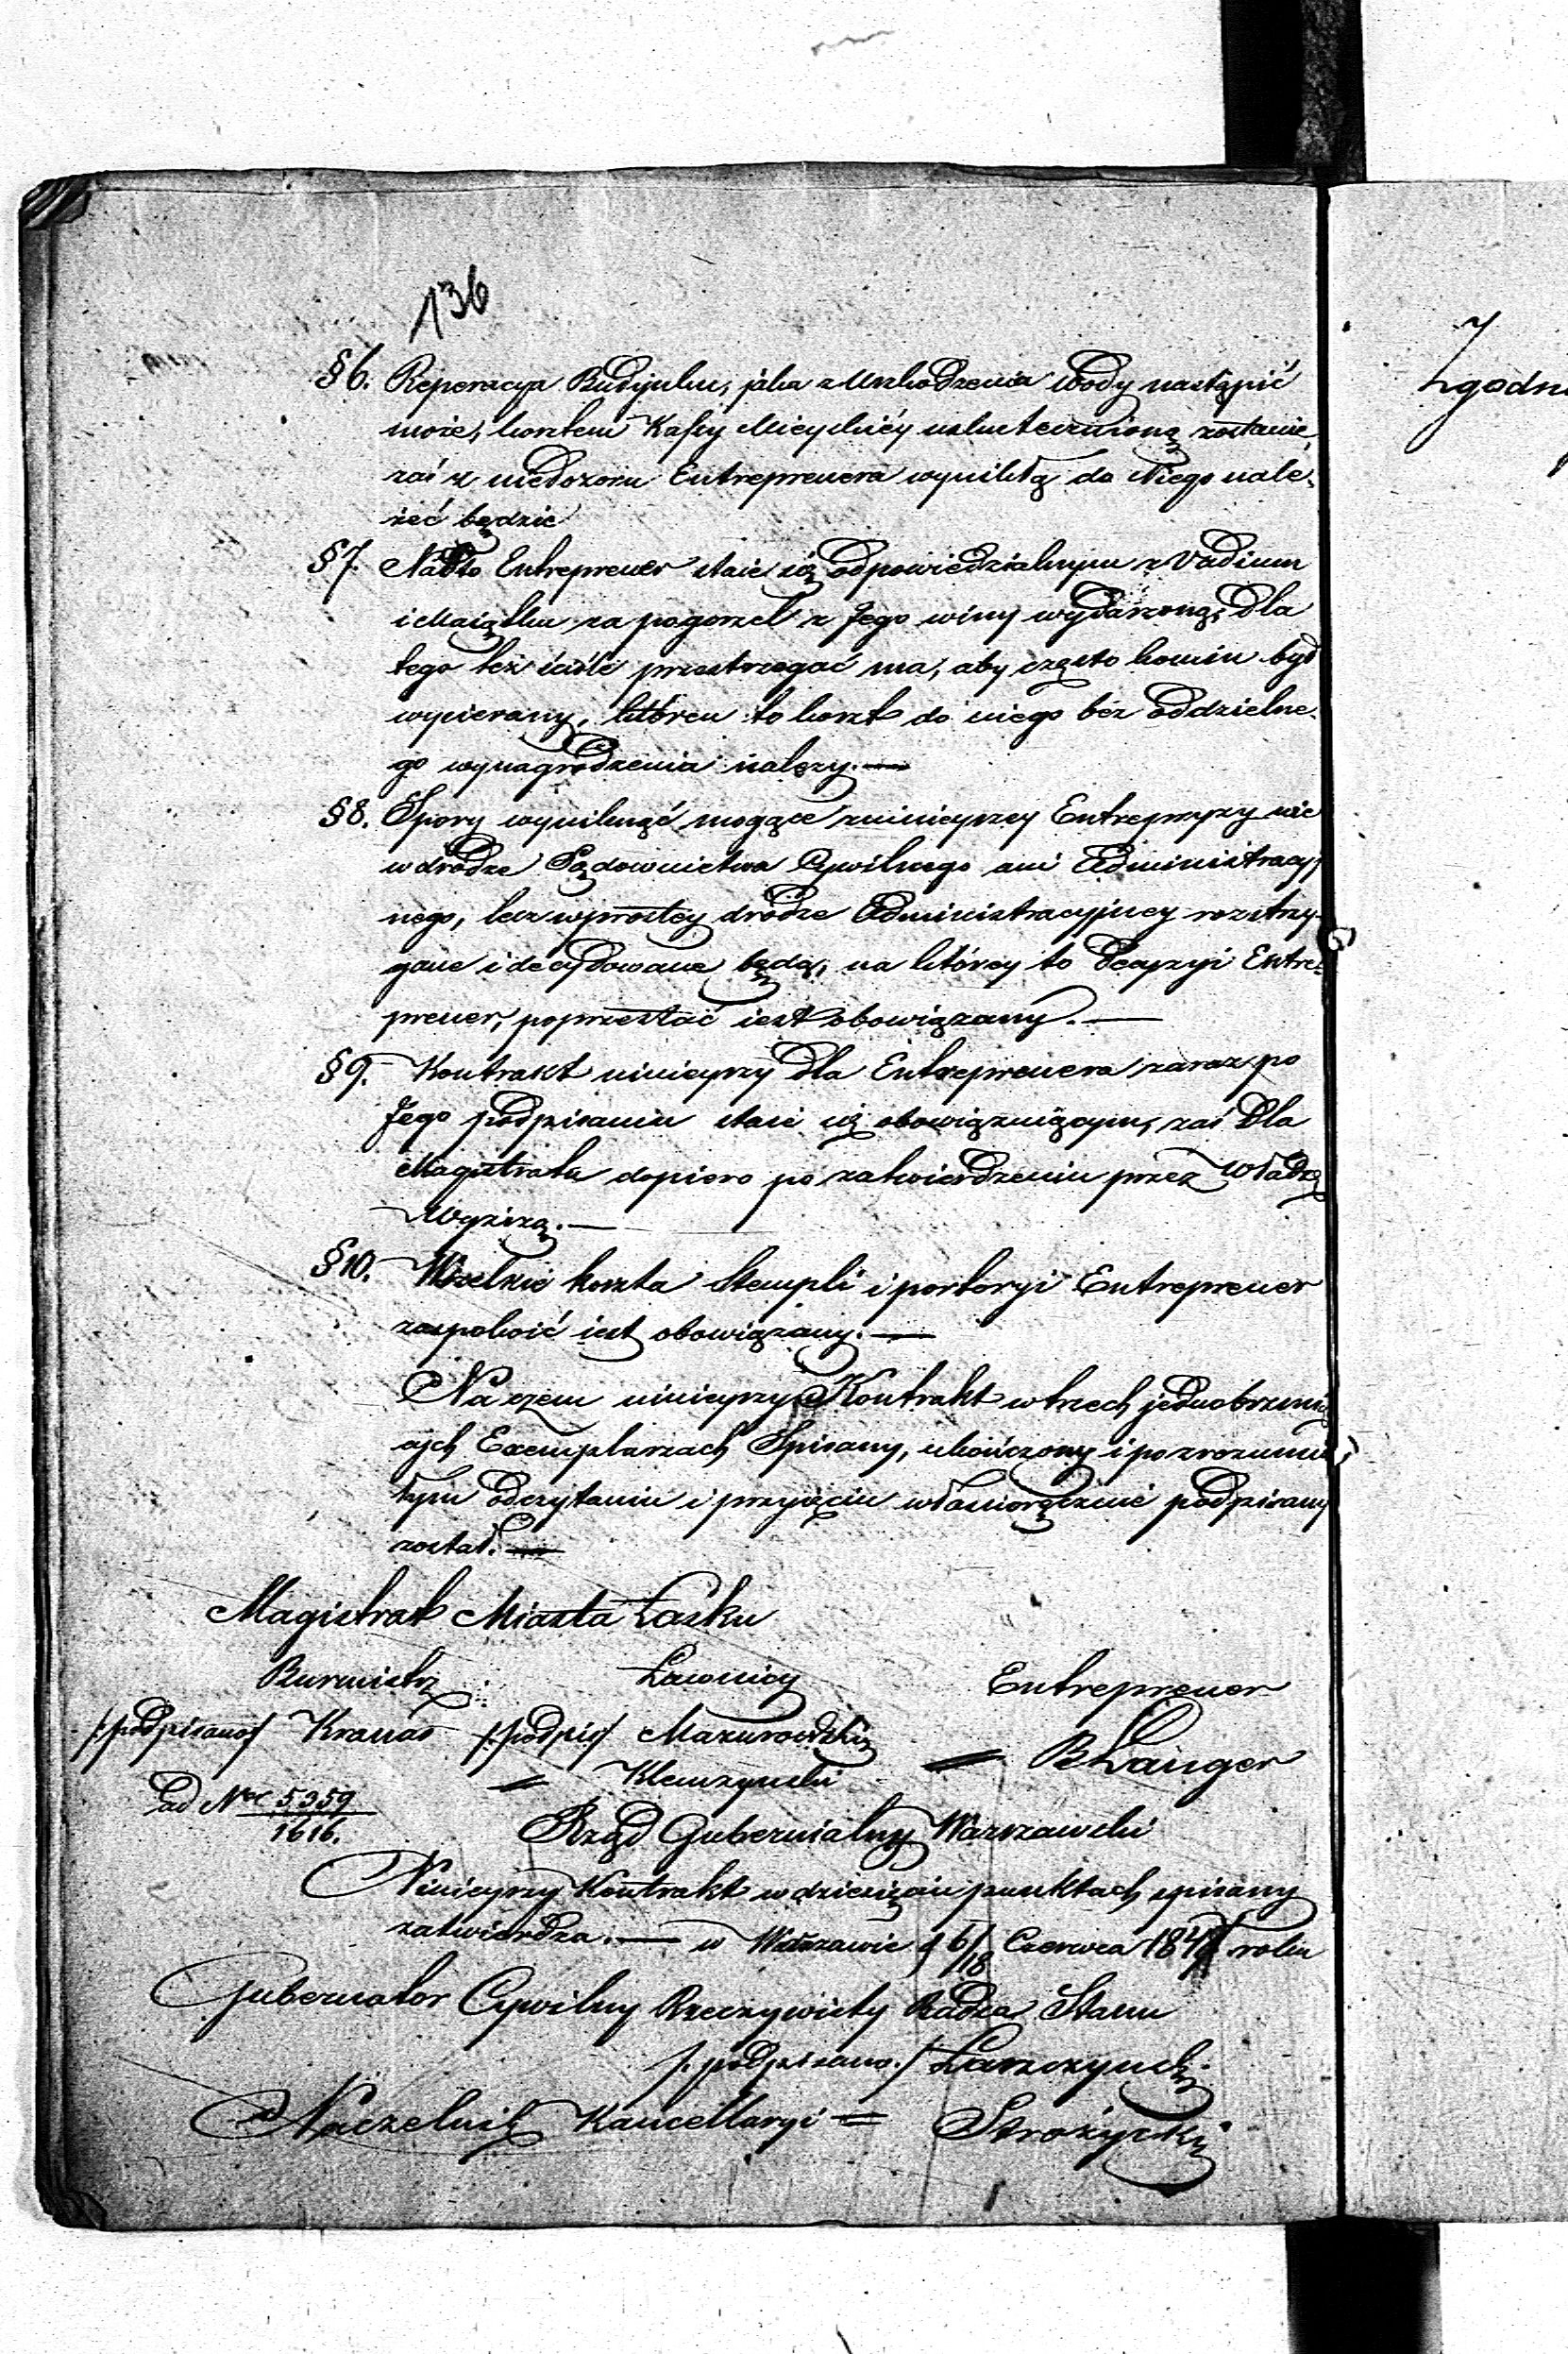 136
§ 6. Reperacya Budynku, jaka z Uszkodzenia Wody nastąpić
może, kosztem Kassy Mieyskiéy uskutecznioną zostanie,
zaś z niedozoru Entreprenera wynikłą do Niego nale-
żeć będzie
§ 7. Nadto Entreprener staie się odpowiedzialnym z Vadium
i Maiątku za pogorzel z Jego winy wydarzoną, Dla
tego też ściśle przestrzegać ma, aby często komin był
wycierany, któren to koszt do niego bez oddzielne-
go wynagrodzenia należy. —
§ 8. Spory wyniknąć mogące z ninieyszey Entrepryzy nie
w drodze Sądownictwa Cywilnego ani Administracyj
nego, lecz w prostey drodze Administracyjney rozstrzy-
gane i decydowane będą, na którey to Decyzyi Entre-
prener, poprzestać iest obowiązany. —
§ 9. Kontrakt ninieyszy dla Entreprenera zaraz po
Jego podpisaniu staie się obowiązuiącym, zaś Dla
Magistratu dopiero po zatwierdzeniu przez Władzę
Wyższą. —
§ 10. Wszelkie koszta Stempli i portoryi Entreprener
zaspokoić iest obowiązany. —
Na czem ninieyszy Kontrakt w trzech jednobrzmią
cych Exemplarzach Spisany, ukończony i po zrozumia
łym odczytaniu i przyięciu własnoręcznie podpisany
został. —
Magistrat Miasta Łasku
Burmistrz Ławnicy Entreprener
/:podpisano/ Kranas /:podpis/ Mazurowski
= Klemczynski = B Langer
ad Nro 5359
1616.
Rząd Gubernialny Warszawski
Ninieyszy Kontrakt w dziesięciu punktach spisany
zatwierdza. — w Warszawie d 6/18 Czerwca roku
Gubernator Cywilny Rzeczywisty Radca Stanu
/: podpisano :/ Łaszczynski
Naczelnik Kancellaryi = Strożycki
Zgodn